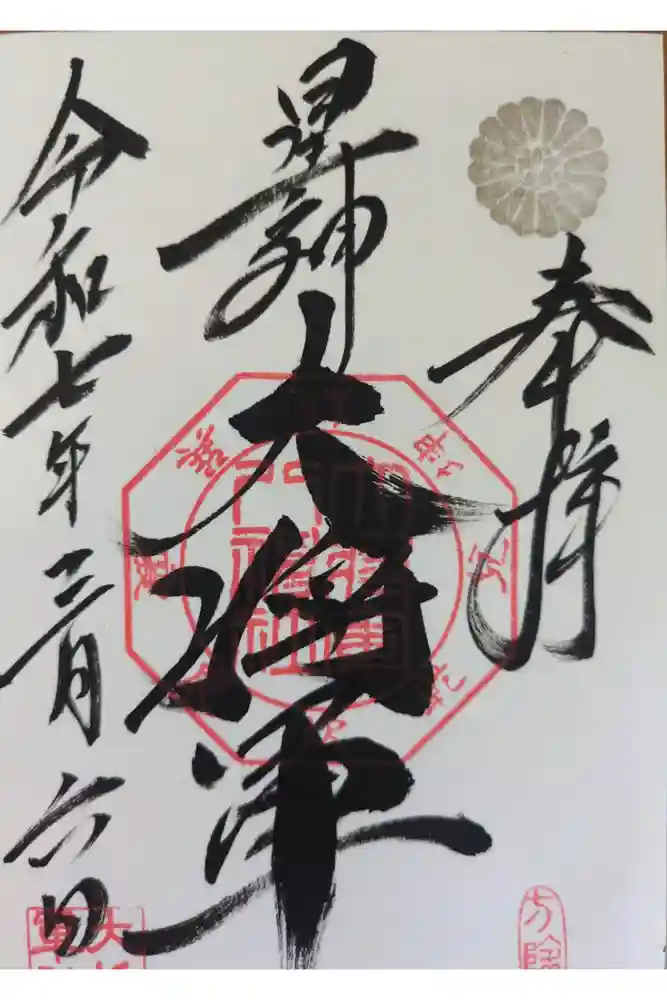 奉拝
星神
大将軍
令和七年三月六日
方除